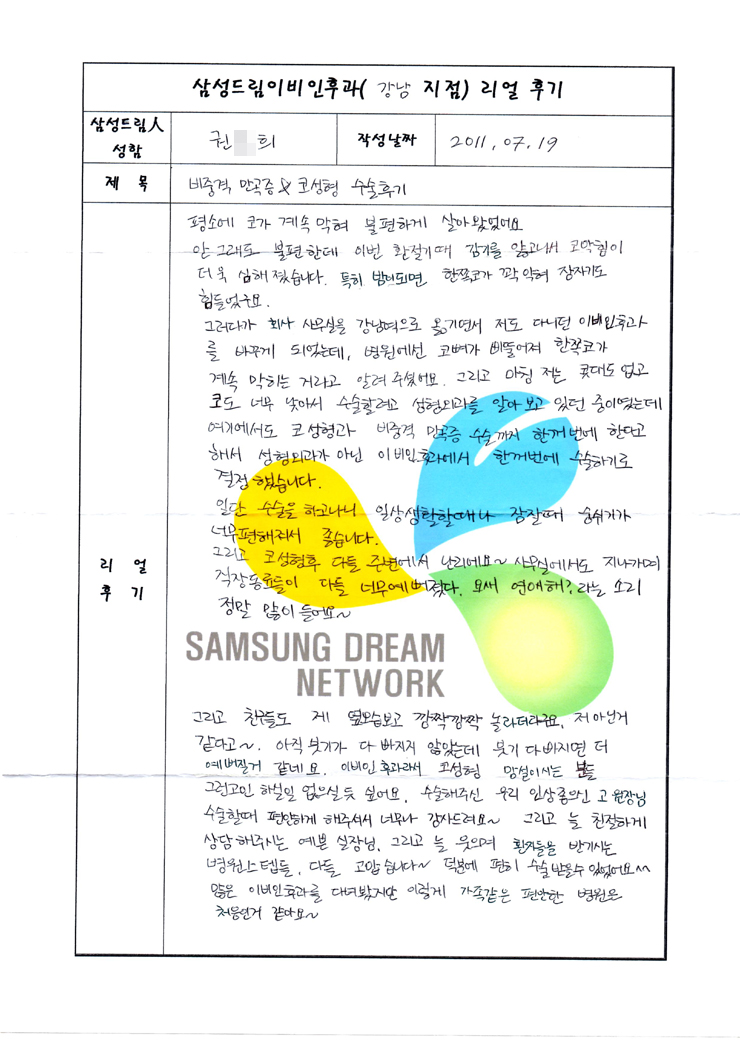 삼성드림이비인후과( 강남 지점) 리얼 후기
삼성드림人 성함
권 희
작성날짜
2011, 07. 19
제 목
비중격 만곡증 & 코성형 수술후기
리 얼
후 기
평소에 코가 계속 막혀 불편하게 살아왔었어요
안 그래도 불편한데 이번 환절기때 감기를 앓고나서 코막힘이
더욱 심해졌습니다. 특히 밤이되면 한쪽코가 꽉 막혀 잠자기도
힘들었구요.
그러다가 회사 사무실을 강남역으로 옮기면서 저도 다니던 이비인후과
를 바꾸게 되었는데, 병원에선 코뼈가 삐뚤어져 한쪽코가
계속 막히는 거라고 알려 주셨어요. 그리고 마침 저는 콧대도 없고
코도 너무 낮아서 수술할려고 성형외과를 알아 보고 있던 중이였는데
여기에서도 코성형과 비중격 만곡증 수술까지 한꺼번에 한다고
해서 성형외과가 아닌 이비인후과에서 한꺼번에 수술하기로
결정했습니다.
일단 수술을 하고나니 일상생활할때나 잠잘때 숨쉬기가
너무편해져서 좋습니다.
그리고 코성형후 다들 주변에서 난리에요~ 사무실에서도 지나가며
직장동료들이 다들 너무예뻐졌다. 요새 연애해? 라는 소리
정말 많이 들어요~
SAMSUNG DREAM
NETWORK
그리고 친구들도 제 옆모습보고 깜짝깜짝 놀라더라구요. 저 아닌거
같다고~. 아직 붓기가 다 빠지지 않았는데 붓기 다 빠지면 더
예뻐질거 같네요. 이비인후과라서 코성형 망설이시는 분들
그런고민 하실일 없으실 듯 싶어요. 수술해주신 우리 인상좋으신 고 원장님
수술할때 편안하게 해주셔서 너무나 감사드려요~ 그리고 늘 친절하게
상담해주시는 예쁜 실장님, 그리고 늘 웃으며 환자들을 반기시는
병원스텝들, 다들 고맙습니다~ 덕분에 편히 수술받을수 있었어요^^
많은 이비인후과를 다녀봤지만 이렇게 가족같은 편안한 병원은
처음인거 같아요~